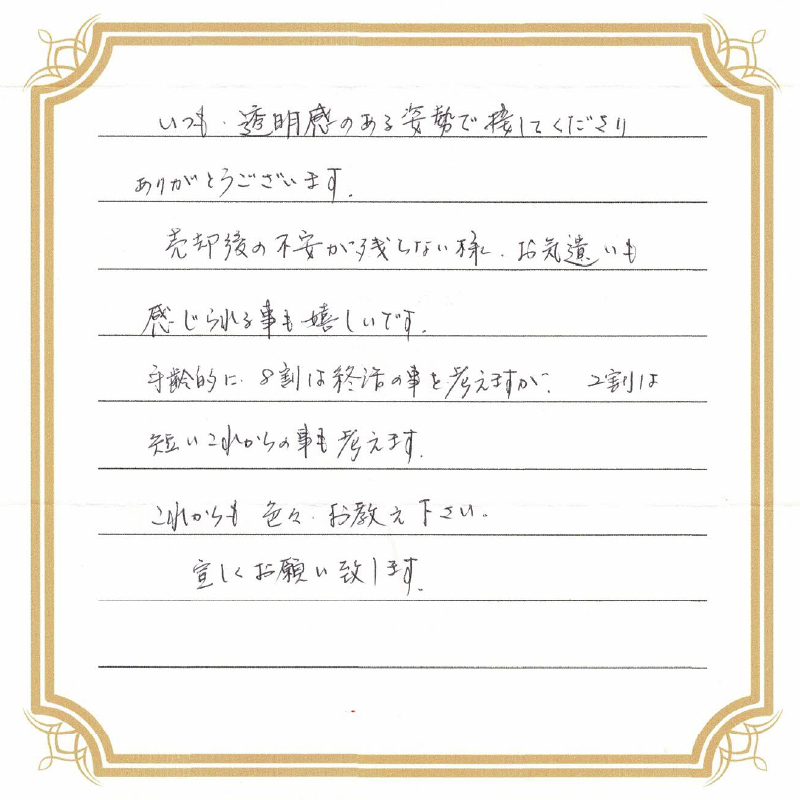 いつも、透明感のある姿勢で接してくださり
ありがとうございます。
売却後の不安が残らない様に、お気遣いも
感じられる事も嬉しいです。
年齢的に、8割は終活の事を考えますが、2割は
短いこれからの事も考えます。
これからも色々、お教え下さい。
宜しくお願い致します。